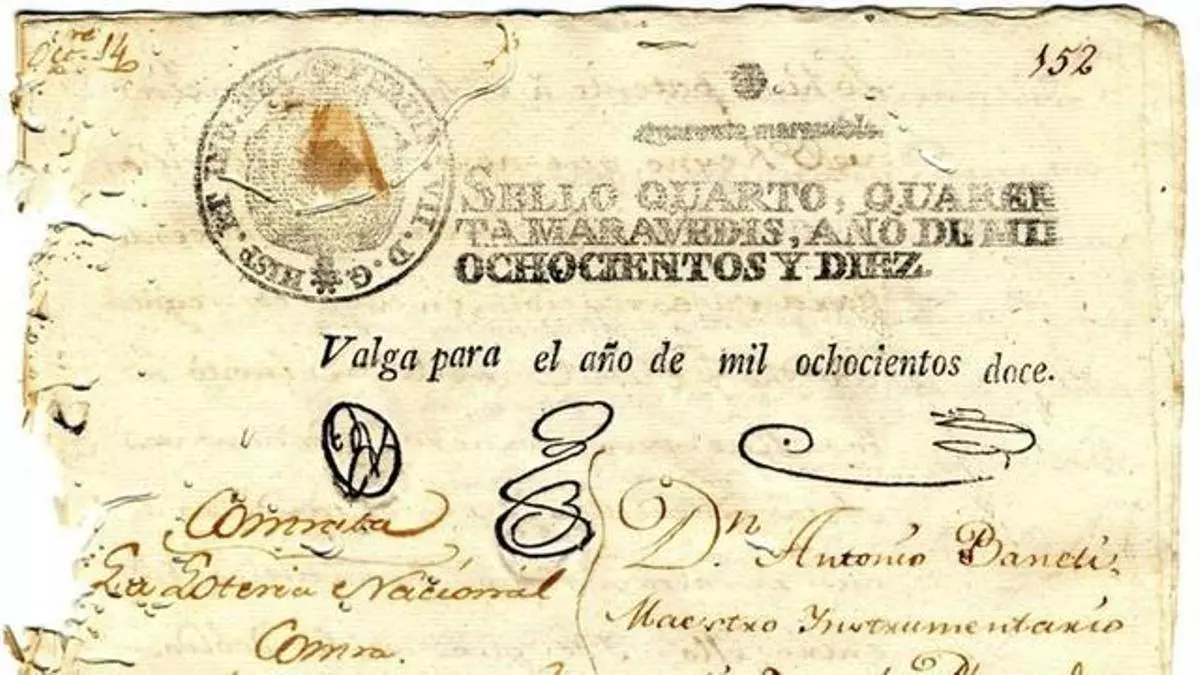 Oct.re 14
152
FERDIN. VII. D. G. HISP. ET IND. REX.
Quarenta maravedis.
SELLO QUARTO, QUAREN
TA MARAVEDIS, AÑO DE MIL
OCHOCIENTOS Y DIEZ.
Valga para el año de mil ochocientos doce.
La Loteria Nacional
Contra.
Dn. Antonio
Maestro Instrumentario